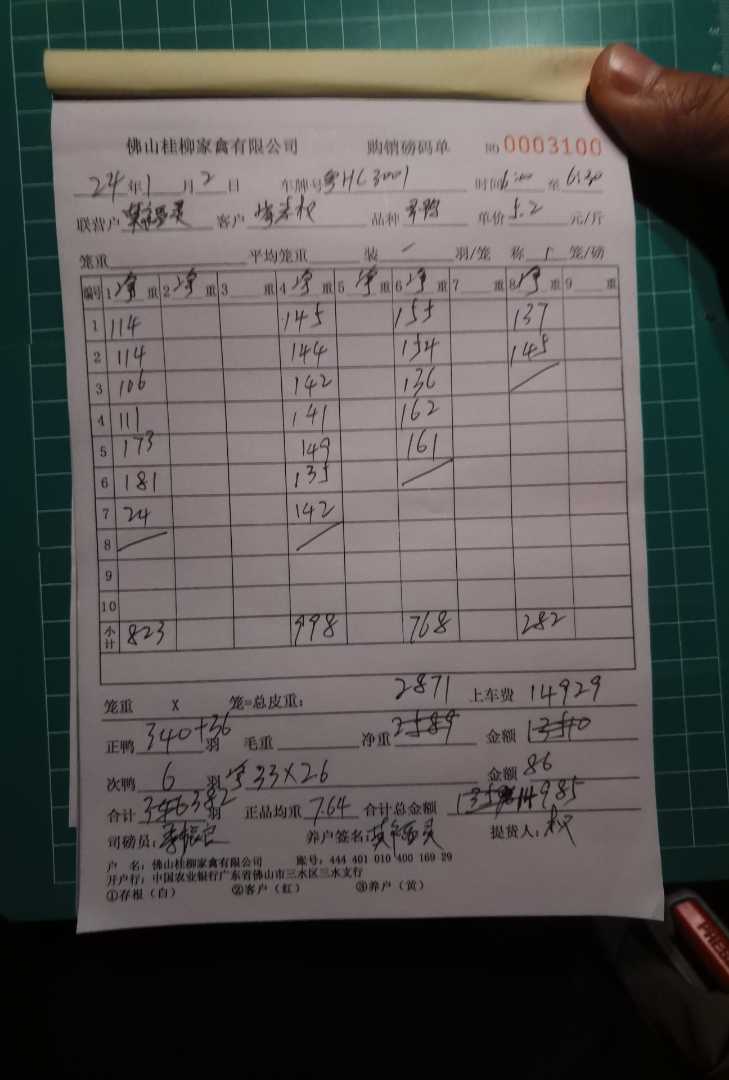 佛山桂柳家禽有限公司 购销磅码单 № 0003100
24年1月2日 车牌号粤HC3001 时间6:00至6:30
联营户 客户 品种 单价5.2元/斤
笼重 平均笼重 装 / 羽/笼 称 1 笼/磅
编号 1净重 2净重 3重 4净重 5净重 6净重 7重 8净重 9重
1 114 145 155 137
2 114 144 154 145
3 106 142 136 /
4 111 141 162
5 173 149 161
6 181 135 /
7 24 142
8 / /
9
10
小计 823 998 768 282
笼重 X 笼=总皮重: 2871 上车费 14929
正鸭 340+36 羽 毛重 净重 2589 金额
次鸭 6 羽 净33×26 金额 86
合计 382 羽 正品均重 7.64 合计总金额 14985
司磅员: 养户签名: 提货人:权
户 名:佛山桂柳家禽有限公司 账号:444 401 010 400 169 29
开户行:中国农业银行广东省佛山市三水区三水支行
①存根(白) ②客户(红) ③养户(黄)
PRESS